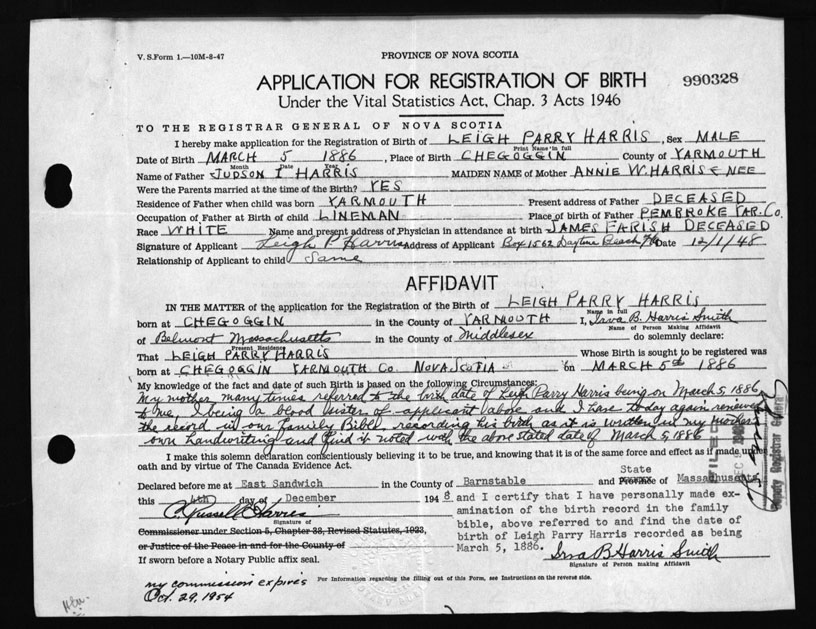 V. S. Form 1.—10M-8-47
PROVINCE OF NOVA SCOTIA
APPLICATION FOR REGISTRATION OF BIRTH
990328
Under the Vital Statistics Act, Chap. 3 Acts 1946
TO THE REGISTRAR GENERAL OF NOVA SCOTIA
I hereby make application for the Registration of Birth of LEIGH PARRY HARRIS, Sex MALE
Print Name in full
Date of Birth MARCH 5 1886, Place of Birth CHEGOGGIN County of YARMOUTH
Month Date Year
Name of Father JUDSON I HARRIS MAIDEN NAME of Mother ANNIE W. HARRIS NEE
Were the Parents married at the time of the Birth? YES
Residence of Father when child was born YARMOUTH Present address of Father DECEASED
Occupation of Father at Birth of child LINEMAN Place of birth of Father PEMBROKE YAR. Co.
Race WHITE Name and present address of Physician in attendance at birth JAMES FARISH DECEASED
Signature of Applicant Leigh P Harris Address of Applicant Box 1562 Daytona Beach Fla Date 12/1/48
Relationship of Applicant to child Same
AFFIDAVIT
IN THE MATTER of the application for the Registration of the Birth of LEIGH PARRY HARRIS
Name in full
born at CHEGOGGIN in the County of YARMOUTH I, Irva B. Harris Smith
Name of Person Making Affidavit
of Belmont Massachusetts in the County of Middlesex do solemnly declare:
Present Residence
That LEIGH PARRY HARRIS Whose Birth is sought to be registered was
born at CHEGOGGIN YARMOUTH Co. NOVA SCOTIA on MARCH 5th 1886
My knowledge of the fact and date of such Birth is based on the following Circumstances:
My mother many times referred to the birth date of Leigh Parry Harris being on March 5, 1886,
to me, I being a blood sister of applicant above and I have today again renewed
the record in our family Bible recording his birth as it is written in my mothers
own handwriting and find it noted with the above stated date of March 5, 1886
I make this solemn declaration conscientiously believing it to be true, and knowing that it is of the same force and effect as if made under
oath and by virtue of The Canada Evidence Act.
State
Declared before me at East Sandwich in the County of Barnstable and Province of Massachusetts
this 4th day of December 1948 and I certify that I have personally made ex-
amination of the birth record in the family
C. Russell Harris
bible, above referred to and find the date of
Signature of
birth of Leigh Parry Harris recorded as being
Commissioner under Section 5, Chapter 38, Revised Statutes, 1923,
March 5, 1886.
or Justice of the Peace in and for the County of
Irva B Harris Smith
Signature of Person making Affidavit
If sworn before a Notary Public affix seal.
For Information regarding the filling out of this Form, see Instructions on the reverse side.
my commission expires
Oct. 29, 1954
FILED
DEC
Deputy Registrar General